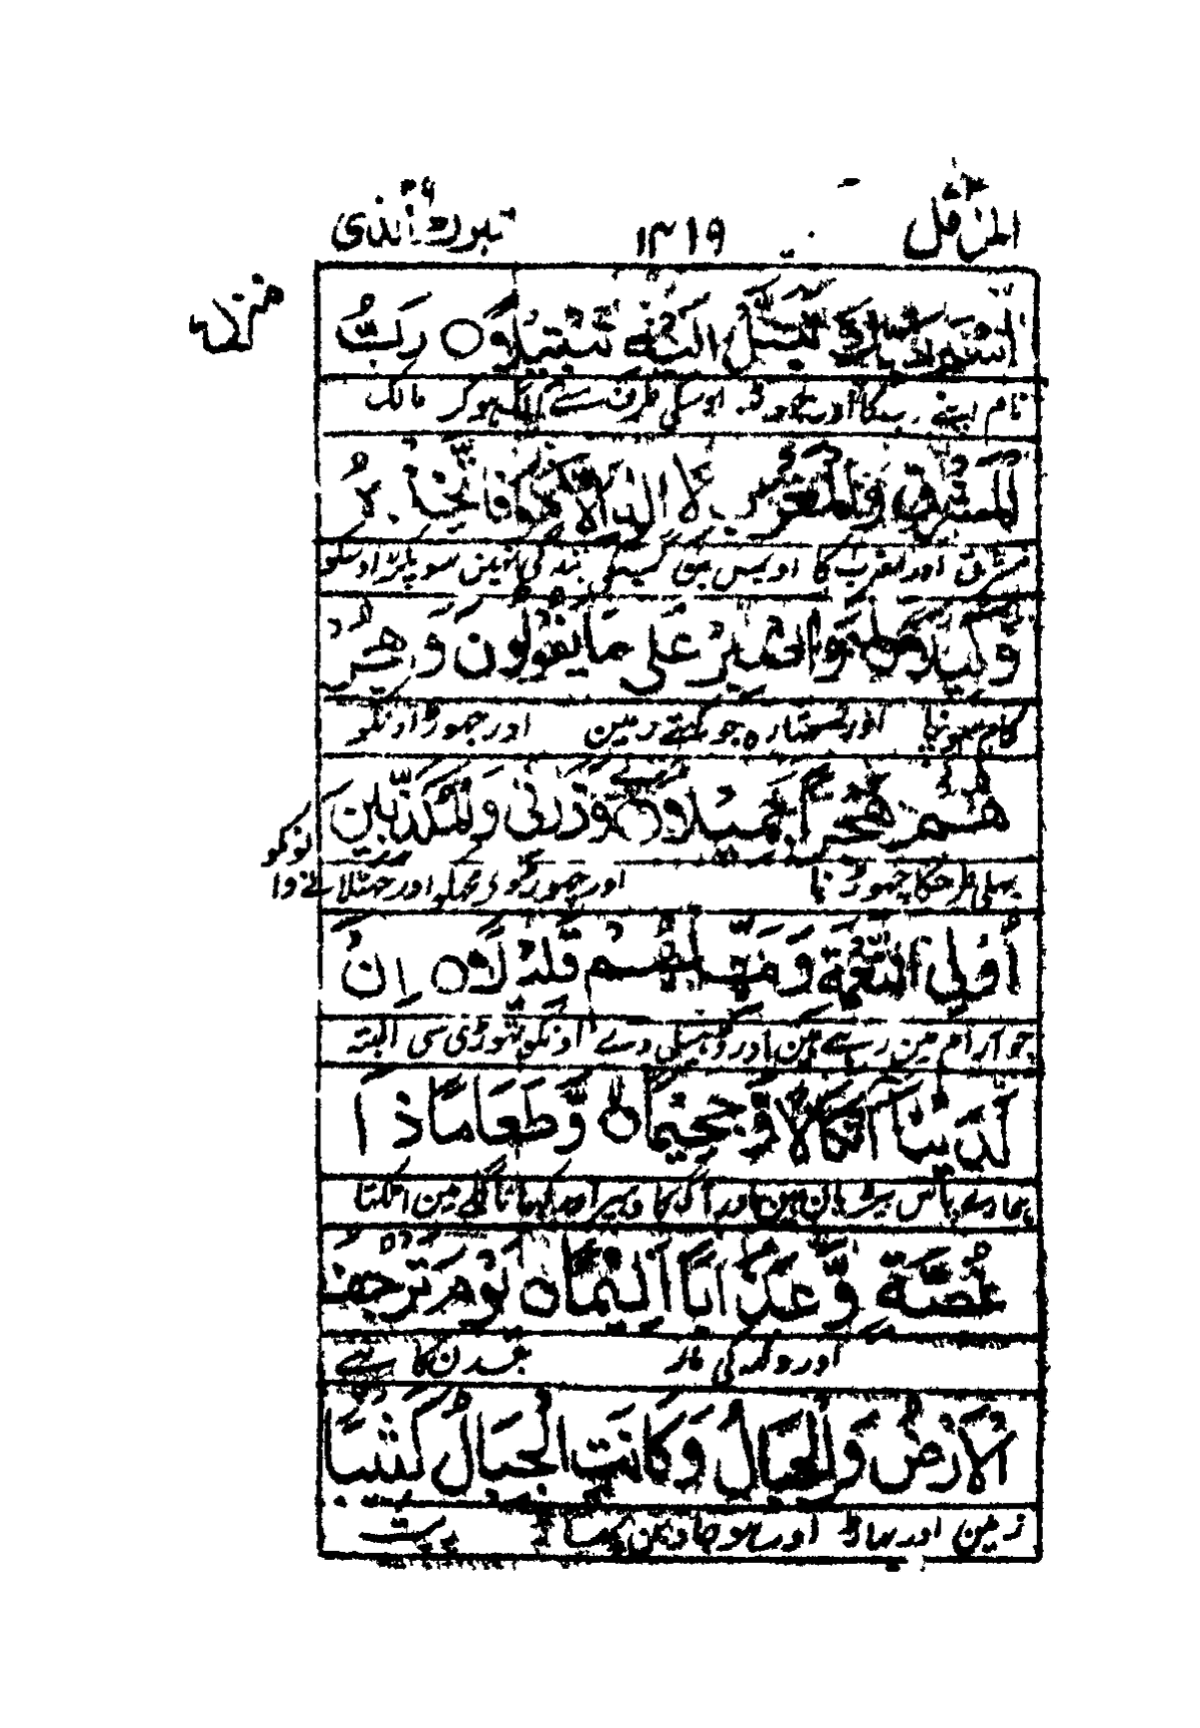 المزمل ٧٣ ١٣١٩ تبرك الذى ٢٩
منزل
اسْمَ رَبِّكَ وَتَبَتَّلْ اِلَيْهِ تَبْتِيْلًا ○ رَبُّ
نام اپنے رب کا اور چھوٹ اوسکی طرف سے الگ ہوکر مالک
الْمَشْرِقِ وَالْمَغْرِبِ لَا اِلٰهَ اِلَّا هُوَ فَاتَّخِذْهُ
مشرق اور مغرب کا اوس بن کسیکی بندگی نہین سو پکڑ اوسکو
وَكِيْلًا ○ وَاصْبِرْ عَلٰى مَا يَقُوْلُوْنَ وَاهْجُرْ
کام سونپا اور سہتارہ جو کہتے رہین اور چھوڑ اونکو
هُمْ هَجْرًا جَمِيْلًا ○ وَذَرْنِيْ وَالْمُكَذِّبِيْنَ
بہلی طرحکا چھوڑنا اور چھوڑ دے مجھکو اور جھٹلانے والونکو
اُولِى النَّعْمَةِ وَمَهِّلْهُمْ قَلِيْلًا ○ اِنَّ
جو آرام مین رہے ہین اور ڈھیل دے اونکو تھوڑی سی البتہ
لَدَيْنَآ اَنْكَالًا وَّجَحِيْمًا ○ وَّطَعَامًا ذَا
ہمارے پاس بیڑیان ہین اور آگ کا ڈھیر اور کھانا گلے مین اٹکتا
غُصَّةٍ وَّعَذَابًا اَلِيْمًا ○ يَوْمَ تَرْجُفُ
اور دکھ کی مار جسدن کانپے
الْاَرْضُ وَالْجِبَالُ وَكَانَتِ الْجِبَالُ كَثِيْبًا
زمین اور پہاڑ اور ہوجاوین پہاڑ ریت